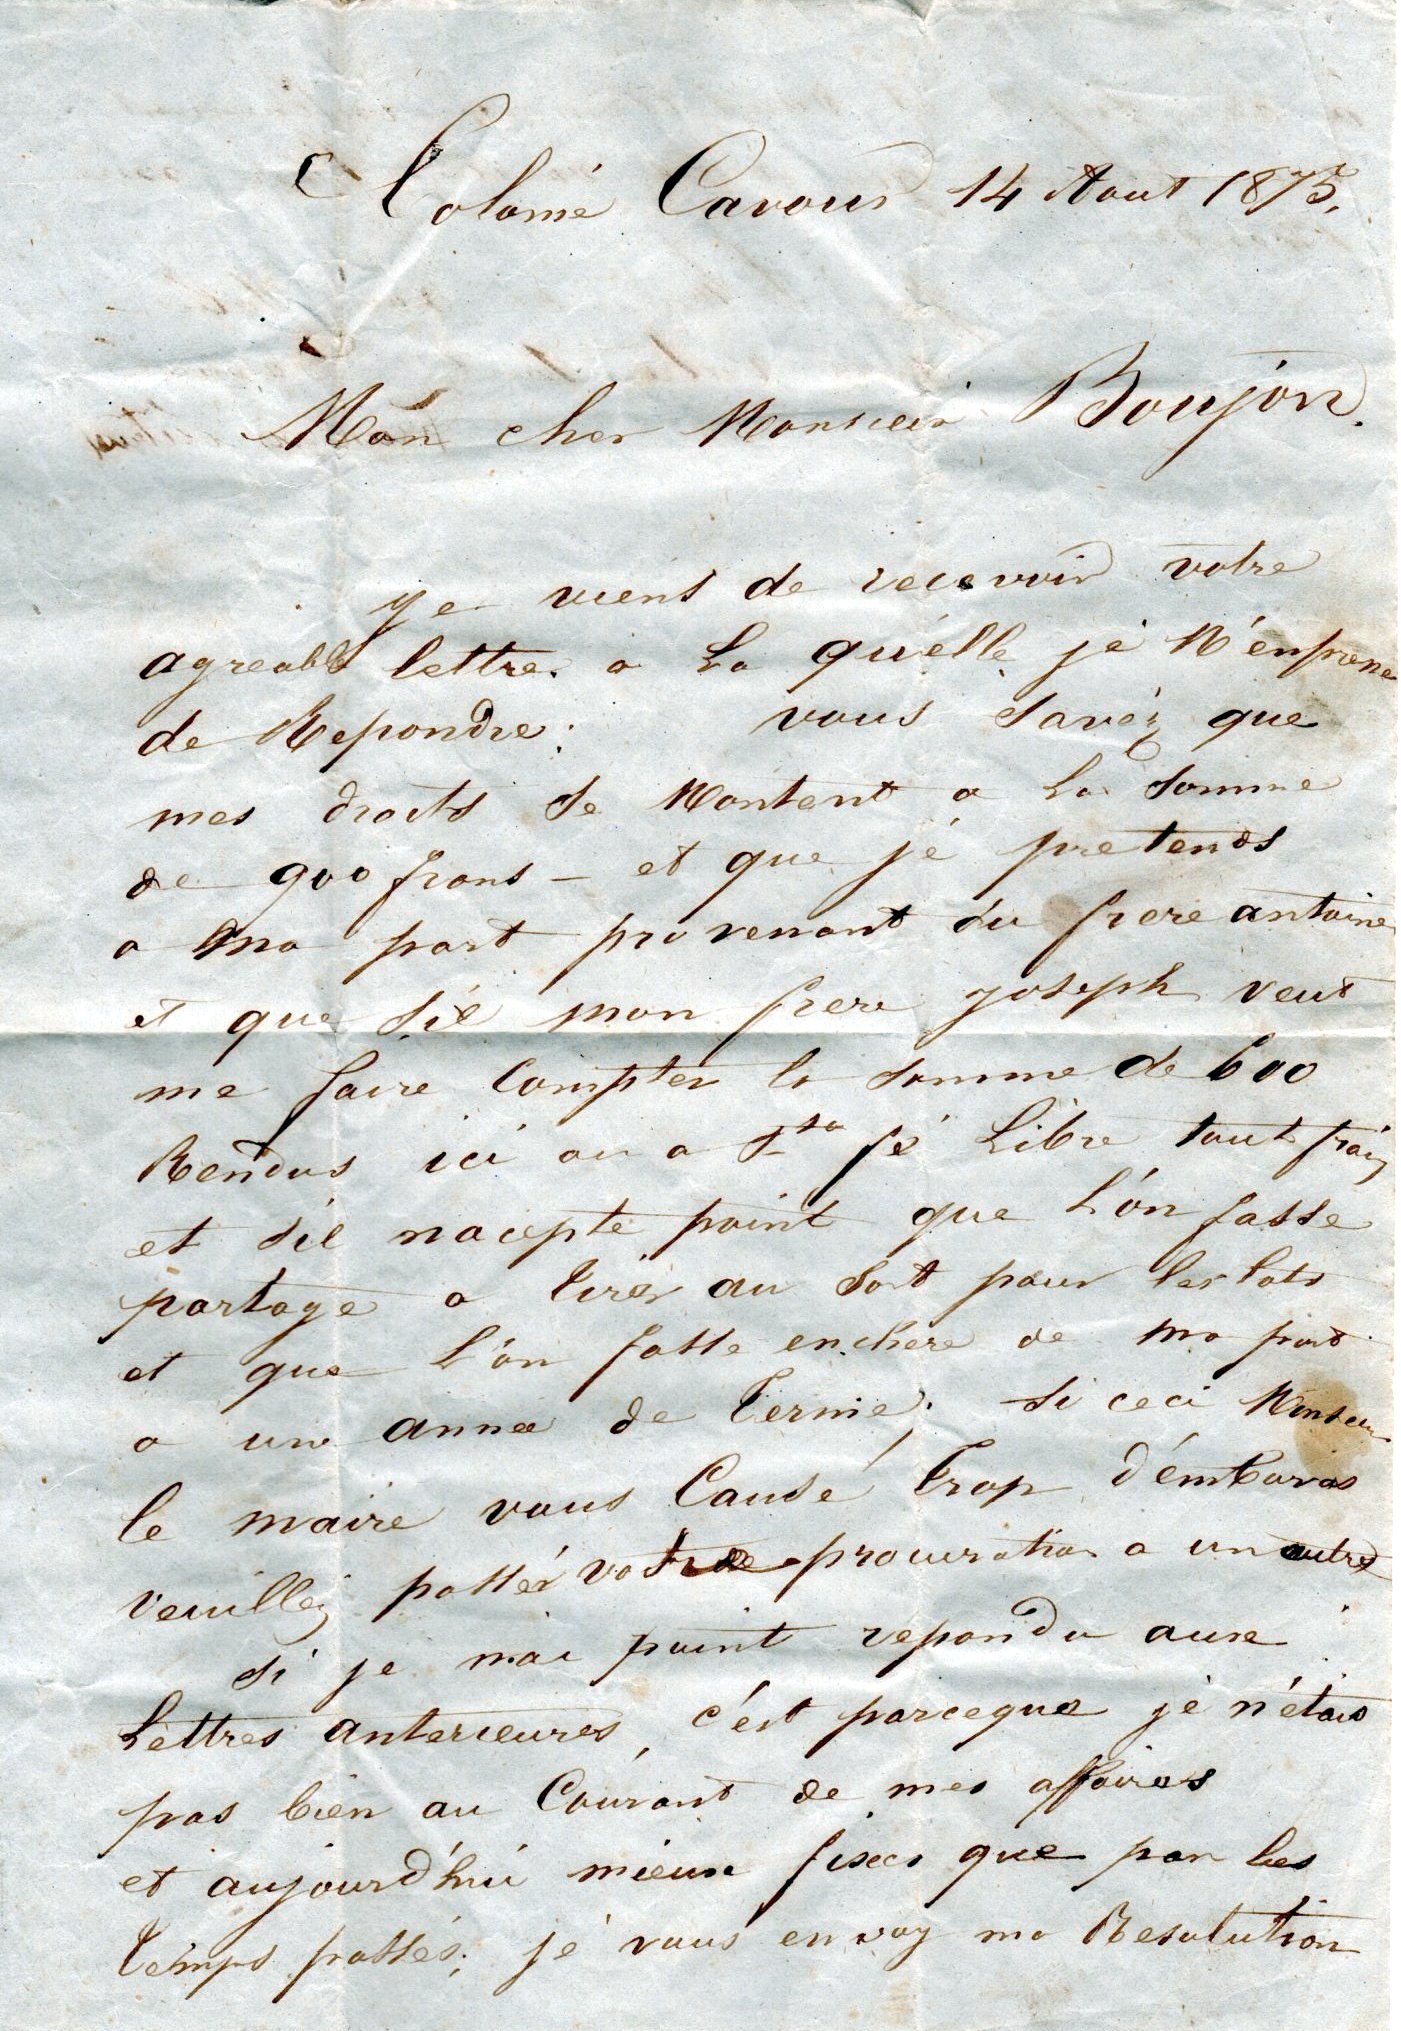 Colonié Cavour 14 Aout 1875.
Mon cher Monsieur Boujon.
ye viens de recevoir votre
agreable lettre. a La qu'élle jé M'énprene
de Repondre: vous Savéz que
mes droits Se Montent a La Somme
de 900 frans – et que jé pretends
a ma part provenant du frere antoine
et que S'il mon frere joseph veut
me faire Compter la Somme de 600
Rendus ici ou a Sta fé Libre tout frais
et S'il nacepte point que L'on fasse
partage a tirér au Sort pour les lots
et que L'on fasse enchere de ma part
a une anneé de Terme; Si ceci Monsieur
le maire vous Causé Trop d'émbaras
veuilléz passér votre procuration a un autre
Si je n'ai point repondu aux
Lettres anterieures, c'ést parceque jé n'étais
pas bien au Courant de mes affaires
et aujourd'hui mieux fixer que par les
Temps passés; jé vous envoy ma Resolution